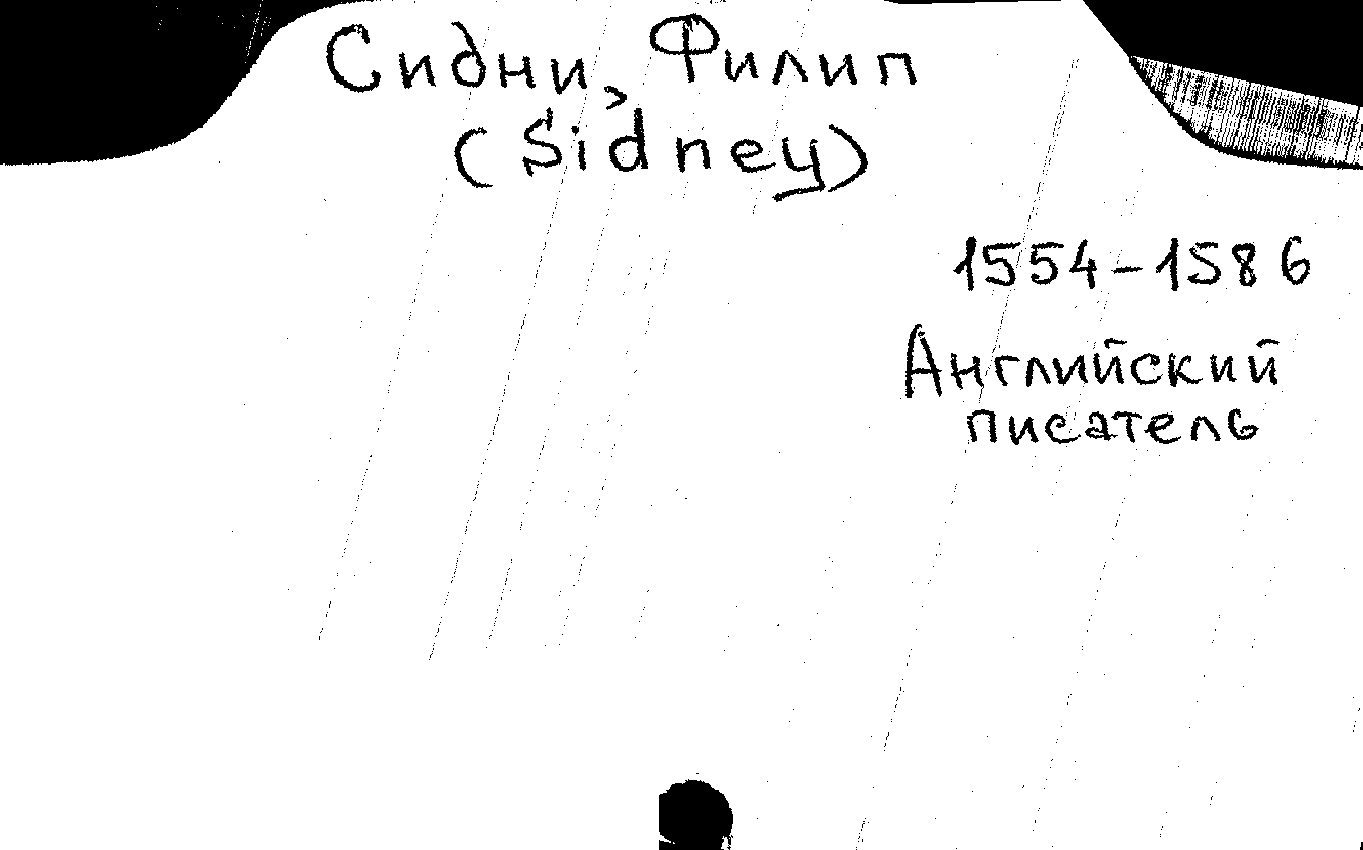 Сидни, Филип
(Sidney)
1554-1586
Английский
писатель